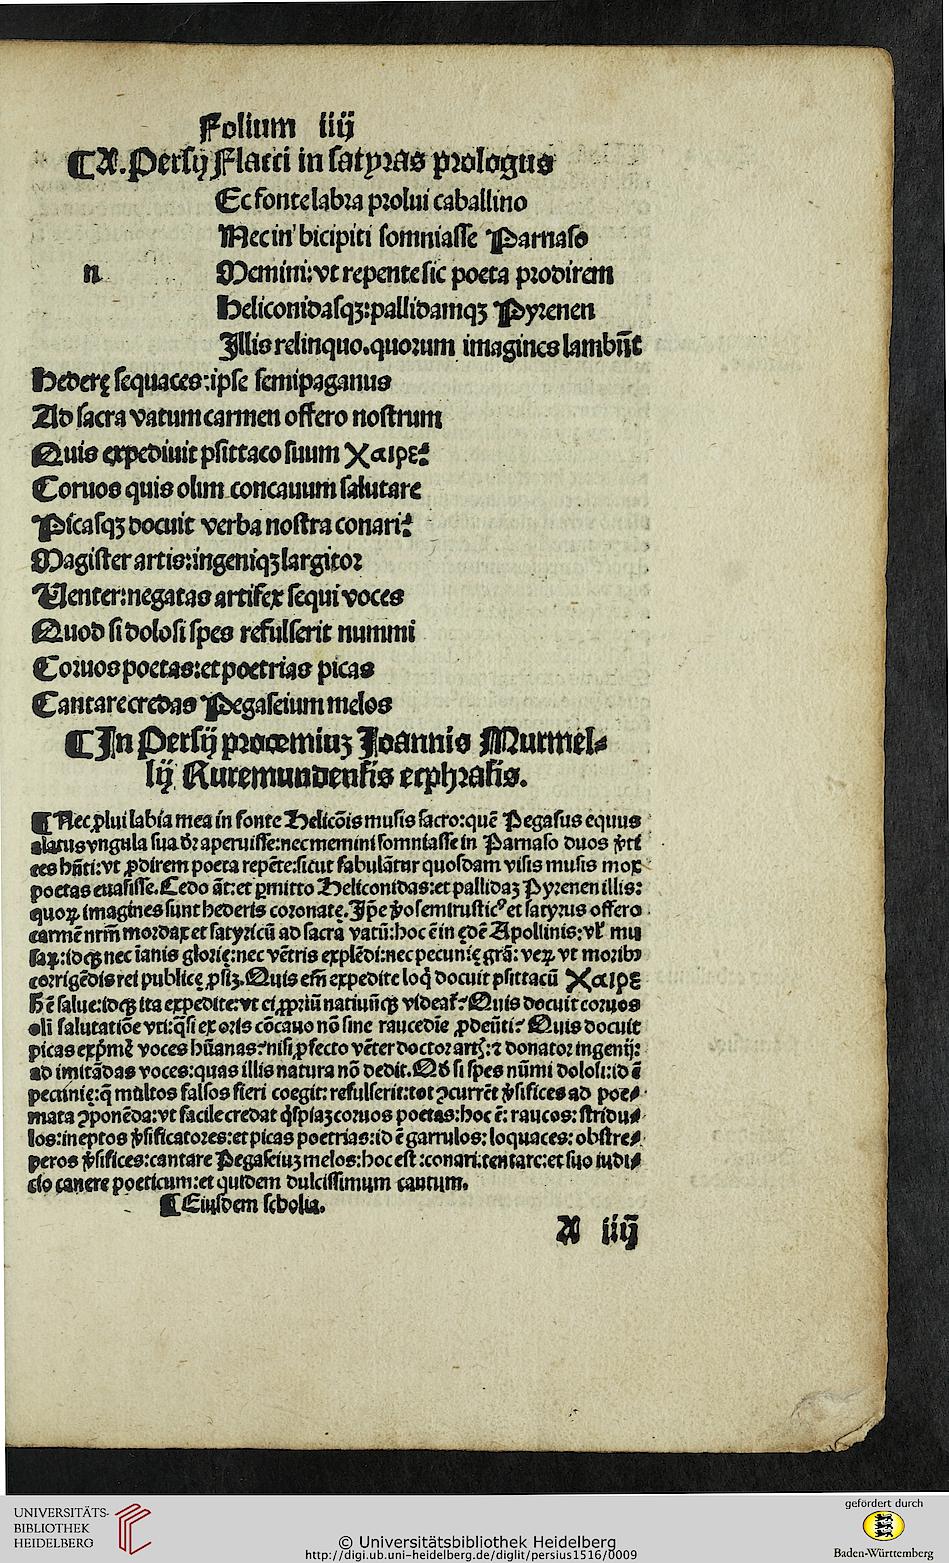 Folium iiij
¶ A. Persij Flacci in satyras prologus
Ec fonte labra prolui caballino
Nec in bicipiti somniasse Parnaso
n Memini: vt repente sic poeta prodirem
Heliconidasqꝫ: pallidamqꝫ Pyrenen
Illis relinquo. quorum imagines lambūt
Hederę sequaces: ipse semipaganus
Ad sacra vatum carmen offero nostrum
Quis expediuit psittaco suum Χαιρε?
Coruos quis olim concauum salutare
Picasqꝫ docuit verba nostra conari?
Magister artis: ingeniqꝫ largitor
Venter: negatas artifex sequi voces
Quod si dolosi spes refulserit nummi
Coruos poetas: et poetrias picas
Cantare credas Pegaseium melos
¶ In Persij prooemiuꝫ Joannis Murmel⸗
lij Ruremundensis ecphrasis.
¶ Nec ꝓlui labia mea in fonte Helicōis musis sacro: quē Pegasus equus
alatus vngula sua dr̄ aperuisse: nec memini somniasse in Parnaso duos v̓ti
ces hn̄ti: vt ꝓdirem poeta repēte: sicut fabulātur quosdam visis musis mox
poetas euasisse. Cedo āt: et ꝑmitto Heliconidas: et pallidaꝫ Pyrenen illis:
quoꝝ imagines sunt hederis coronatę. Ip̄e v̓o semirusticꝰ et satyrus offero
carmē nrm̄ mordax et satyricū ad sacra vatū: hoc ē in ędē Apollinis: vl̓ mu
saꝝ: idqꝫ nec īanis glorię: nec vētris explēdi: nec pecunię grā: veꝝ vt moribꝰ
corrigēdis rei publicę ꝓsiꝫ. Quis em̄ expedite loq̇ docuit psittacū Χαιρε
h̄ ē salue: idqꝫ ita expedite: vt ei ꝓpriū natiuūqꝫ videat᷑? Quis docuit coruos
oli̅ salutatiōe vti: q̄si ex oris cōcauo nō sine raucedīe ꝓdeūti? Quis docuit
picas exp̓mē voces hūanas? nisi ꝓfecto vēter doctor artꝭ: ⁊ donator ingenij:
ad imitādas voces: quas illis natura nō dedit. Qd̓ si spes nūmi dolosi: id ē
pecunię: q̄ multos falsos fieri coegit: refulserit: tot ꝯcurrēt v̓sifices ad poe⸗
mata ꝯponēda: vt facile credat q̇spiaꝫ coruos poetas: hoc ē: raucos: stridu⸗
los: ineptos v̓sificatores: et picas poetrias: id ē garrulos: loquaces: obstre⸗
peros v̓sifices: cantare Pegaseiuꝫ melos: hoc est: conari: tentare: et suo iudi⸗
cio canere poeticum: et quidem dulcissimum cantum.
¶ Eiusdem scholia.
A iiij
UNIVERSITÄTS-
BIBLIOTHEK
HEIDELBERG
© Universitätsbibliothek Heidelberg
http://digi.ub.uni-heidelberg.de/diglit/persius1516/0009
gefördert durch
Baden-Württemberg